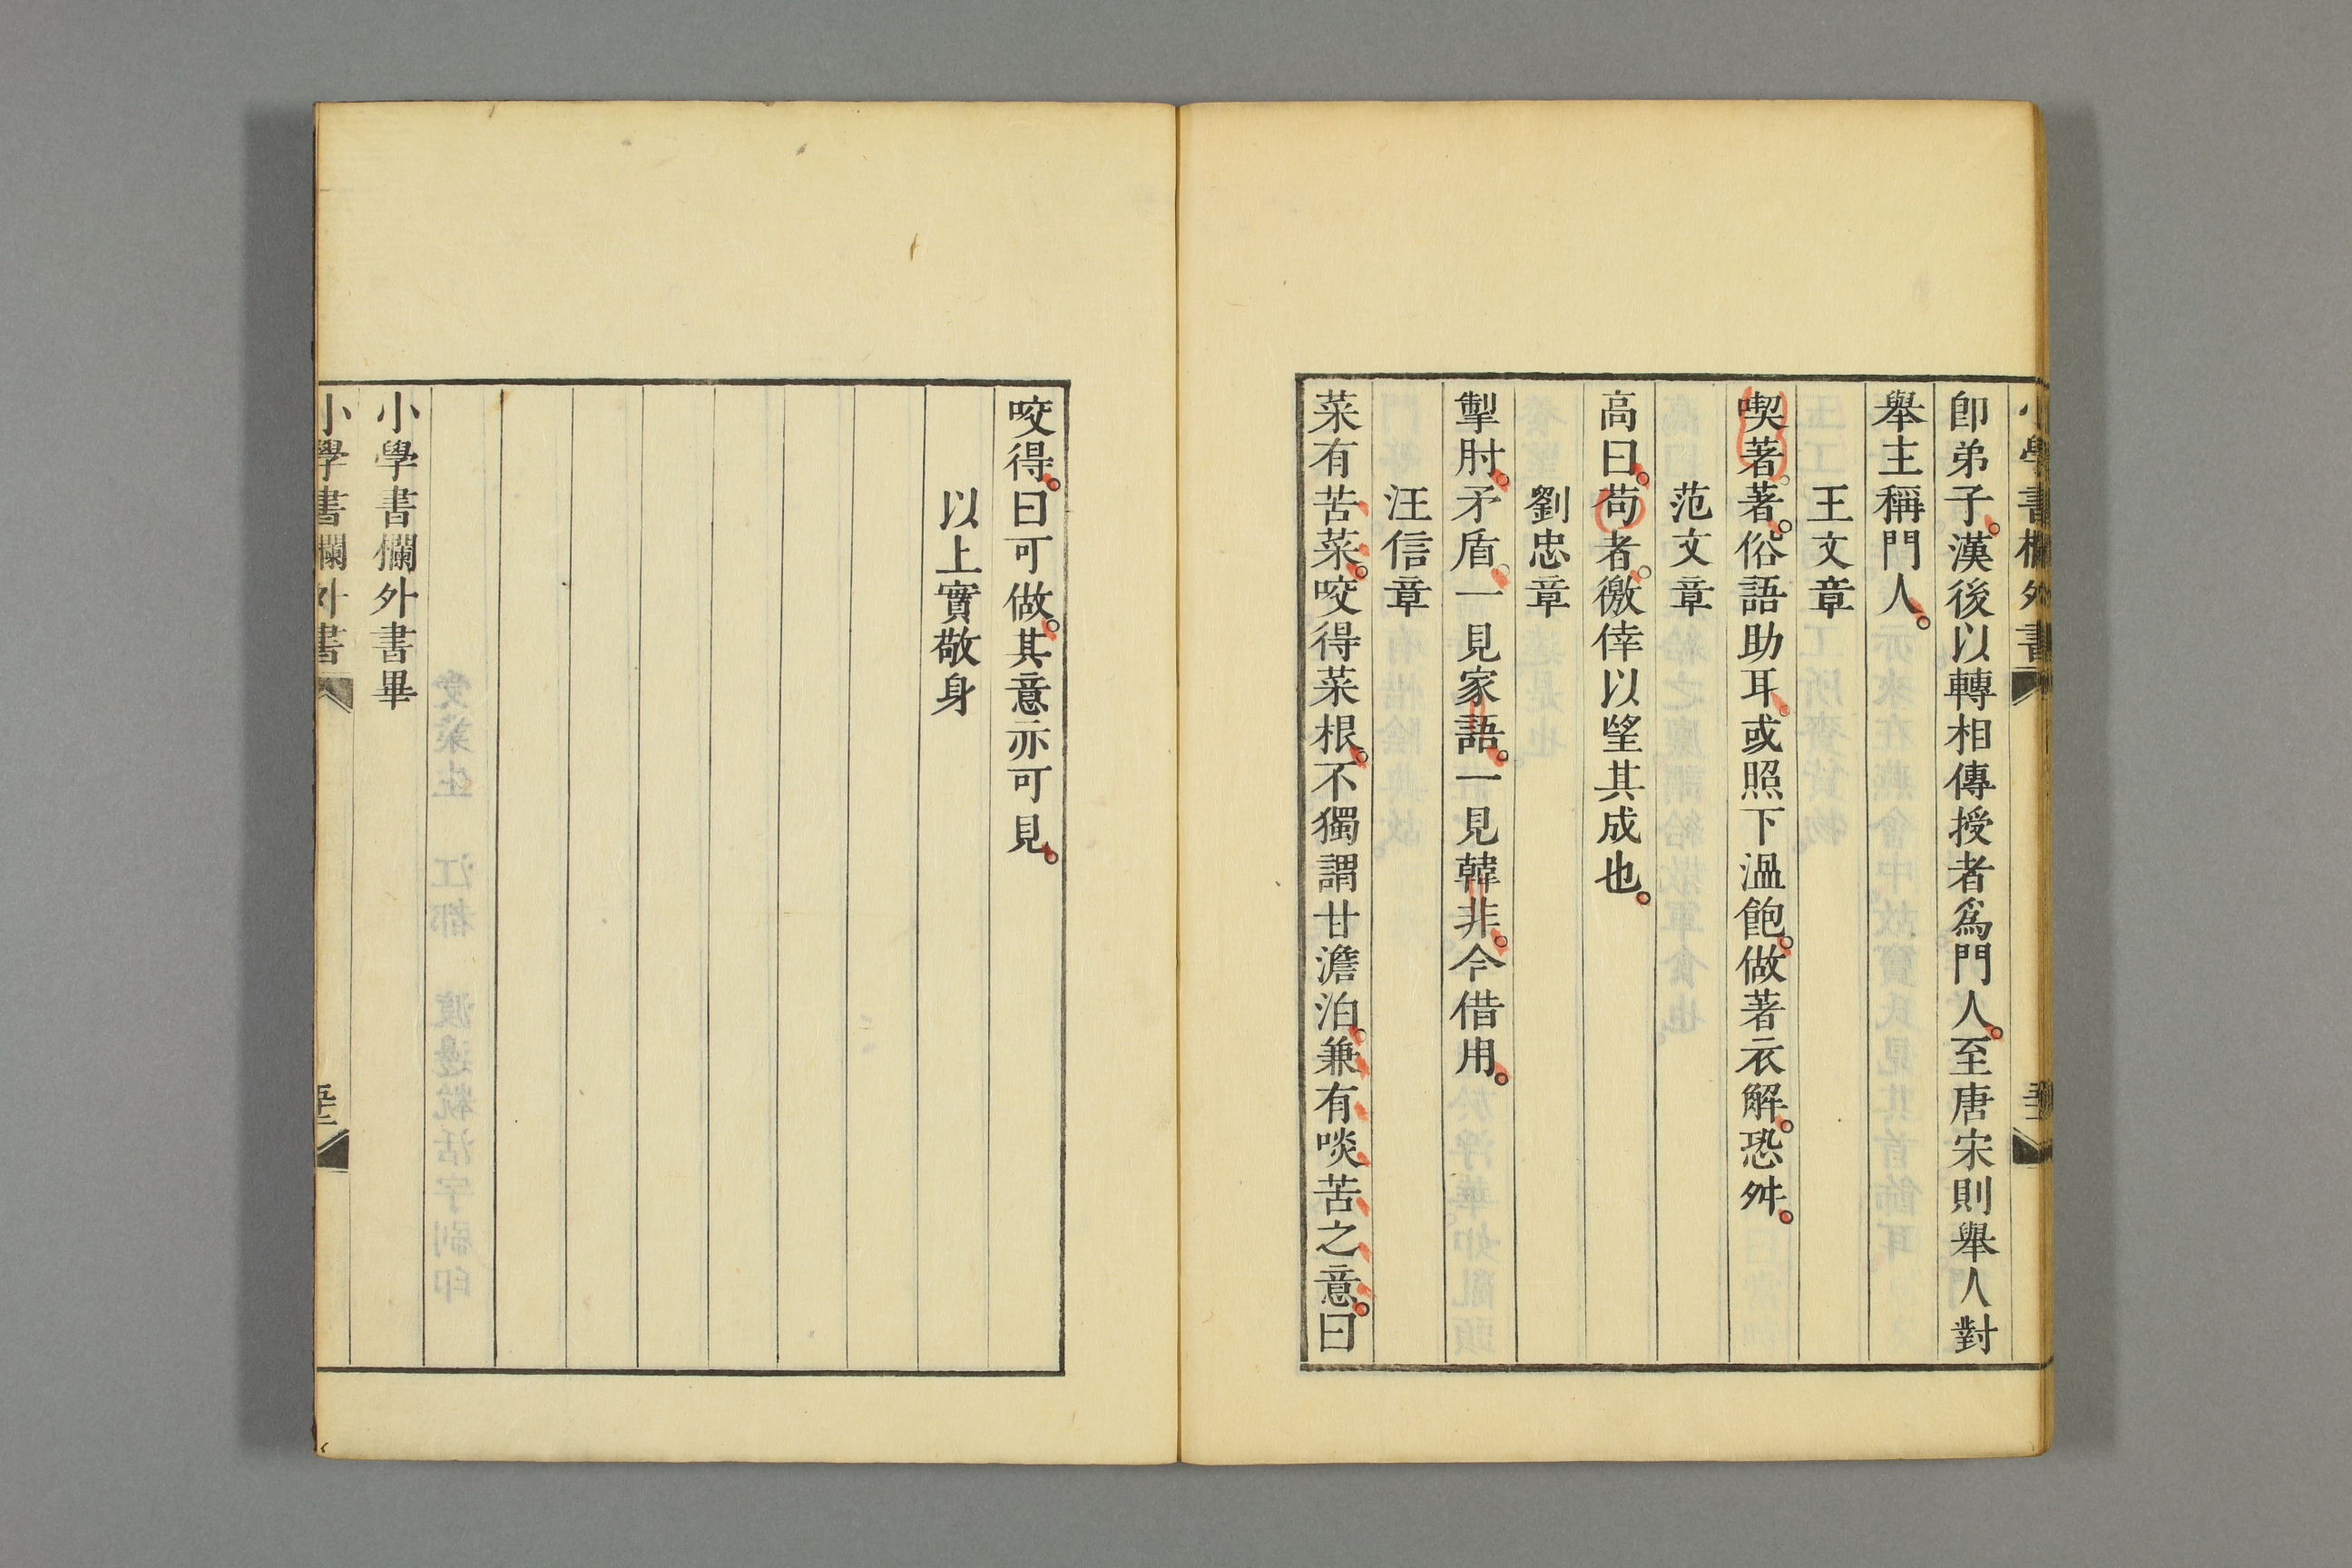 卽弟子。漢後以轉相傳授者爲門人。至唐宋則舉人對
舉主稱門人。
王文章
喫著。著。俗語助耳。或照下溫飽。做著衣解。恐舛。
范文章
高曰。苟者。徼倖以望其成也。
劉忠章
掣肘。矛盾。一見家語。一見韓非。今借用。
汪信章
菜有苦菜。咬得菜根。不獨謂甘澹泊。兼有啖苦之意。曰
咬得。曰可做。其意亦可見。
以上實敬身
小學書欄外書畢
小學書欄外書